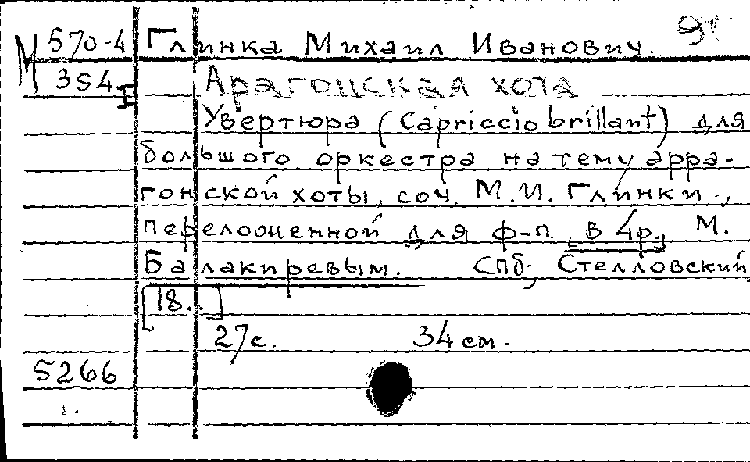 М 570-4 Глинка Михаил Иванович.
354 Арагонская хота
I
Увертюра (Capriccio brillant) для
большого оркестра на тему арра-
гонской хоты, соч. М.И. Глинки.,
переложенной для ф-п. в 4р., М.
Балакиревым. Спб, Стелловский,
[18. ]
27с. 34 см.
5266